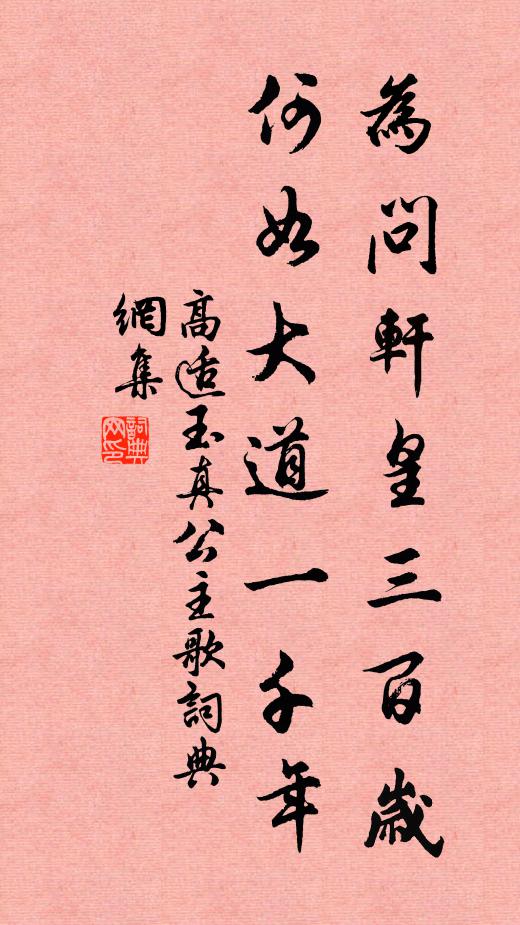 為問軒皇三百歲
何如大道一千年
高适玉真公主歌詞典
網集
詞典
网印